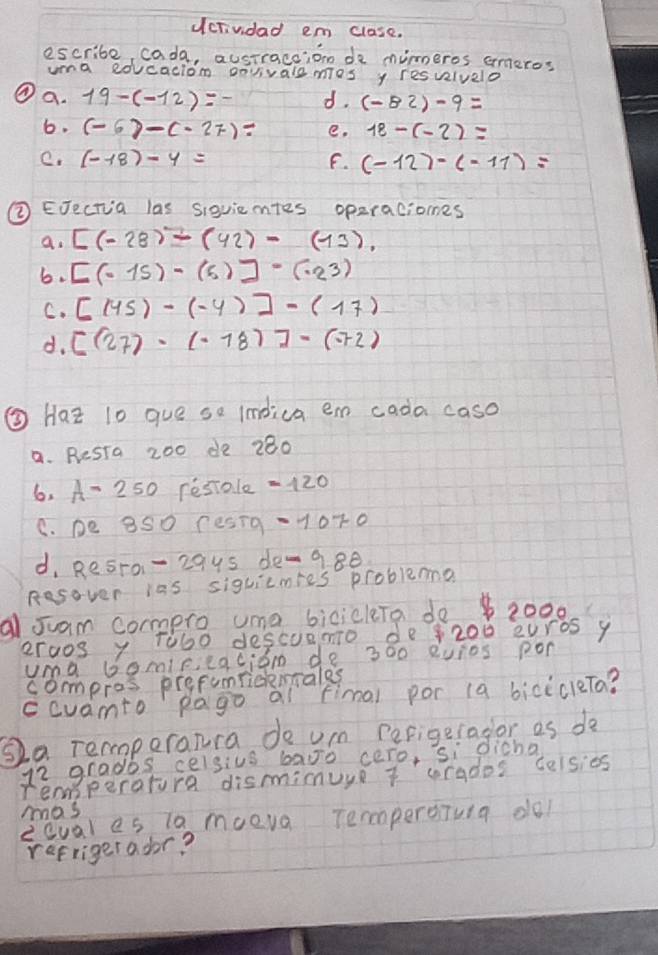 Actividad em clase.
escribe cada, austraccióm de múmeros emteros
uma educacióm equivalemtes y resuelvelo
① a. 19-(-12)=-
d. (-82)-9=
b. (-6)-(-27)=
e. 18-(-2)=
c. (-18)-4=
F. (-12)-(-11)=
② EJectúa las siguiemtes operaciomes
a. [(-28)-(42)-(-13).
b. [(-15)-(5)]-(-23)
c. [(45)-(-4)]-(17)
d. [(27)-(-18)]-(-72)
③ Haz lo que se imdica em cada caso
a. Resta 200 de 280
b. A-250 réstale -120
c. De 850 resta -1070
d. Resta-2945 de-988
Resover las siguiemtes problema
a) Juam compro uma bicicleta de $2000
eruos y tubo descuemto de $200 euros y
uma bomificacióm de 300 euros por
compras prefumridemtales
¿cuamto pago al fimal por la bicicleta?
⑤ La temperatura de um refigerador es de
12 grados celsius bajo cero, si dicha
temperatura dismimuye 7 grados celsios
mas
¿cual es la mueva temperatura del
refrigerador?